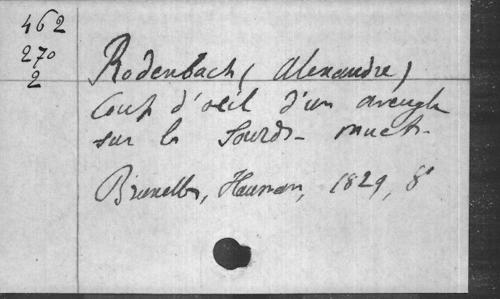 462
270
2
Rodenbach (Alexandre)
Coup d'œil d'un aveugle
sur les Sourds-muets.
Bruxelles, Hauman, 1829, 8°